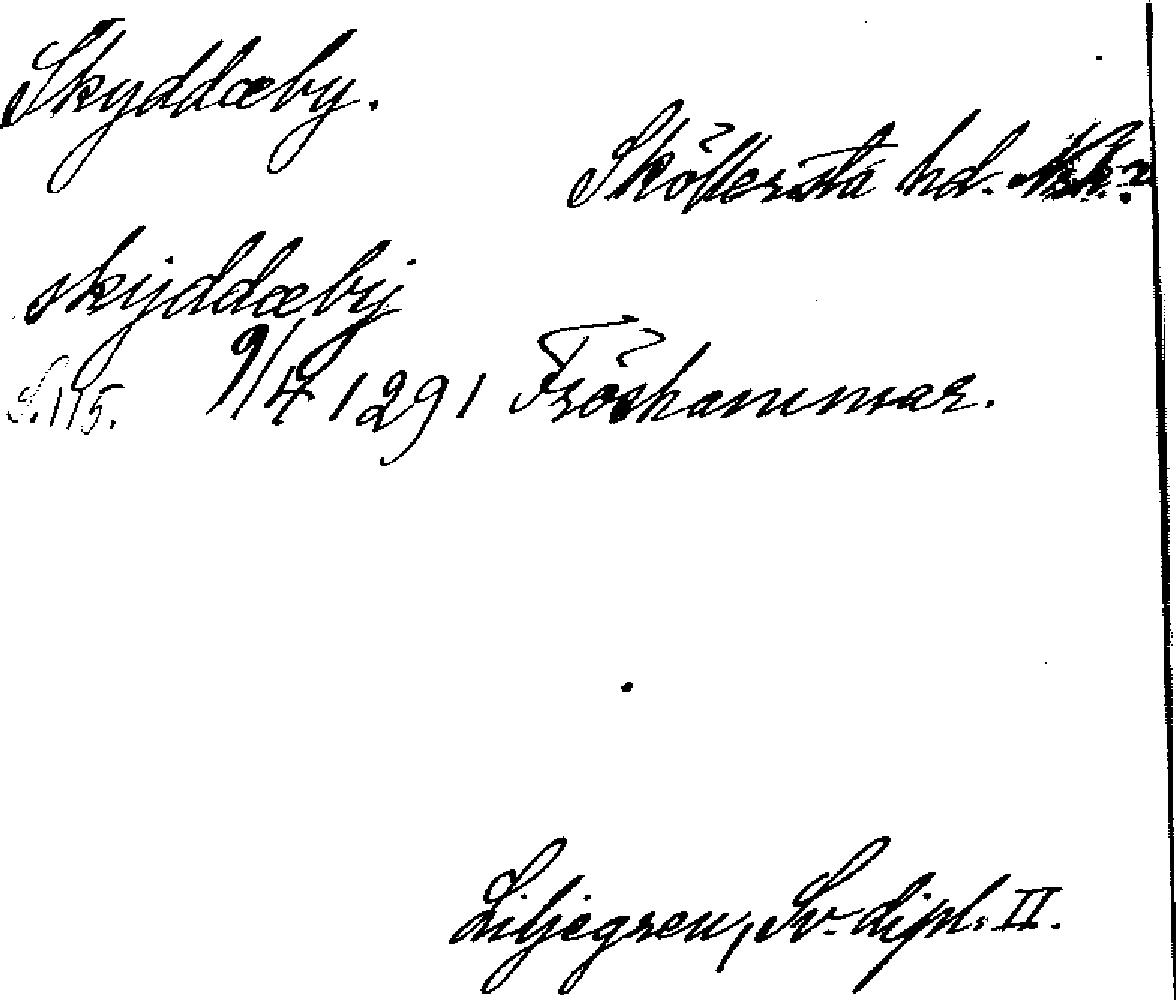 Skyddæby.
Sköllersta hd.
skÿddæbÿ
S. 115. 9/4 1291 Fröshammar.
Liljegren, Sv. dipl. II.